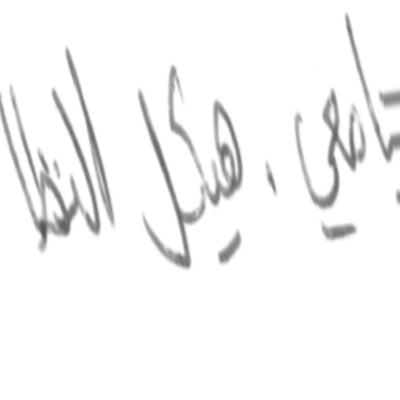 امعي . هيكل النظا